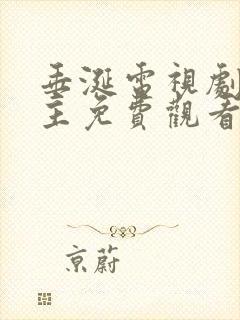 垂涎電視劇
主免費觀看
京蔚